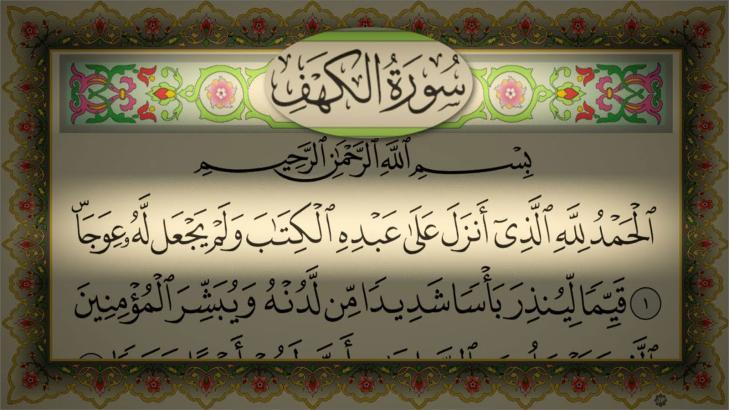 سُورَةُ الكَهْفِ
بِسْمِ ٱللَّهِ ٱلرَّحْمَٰنِ ٱلرَّحِيمِ
ٱلْحَمْدُ لِلَّهِ ٱلَّذِىٓ أَنزَلَ عَلَىٰ عَبْدِهِ ٱلْكِتَٰبَ وَلَمْ يَجْعَل لَّهُۥ عِوَجَاۜ
١ قَيِّمًا لِّيُنذِرَ بَأْسًا شَدِيدًا مِّن لَّدُنْهُ وَيُبَشِّرَ ٱلْمُؤْمِنِينَ